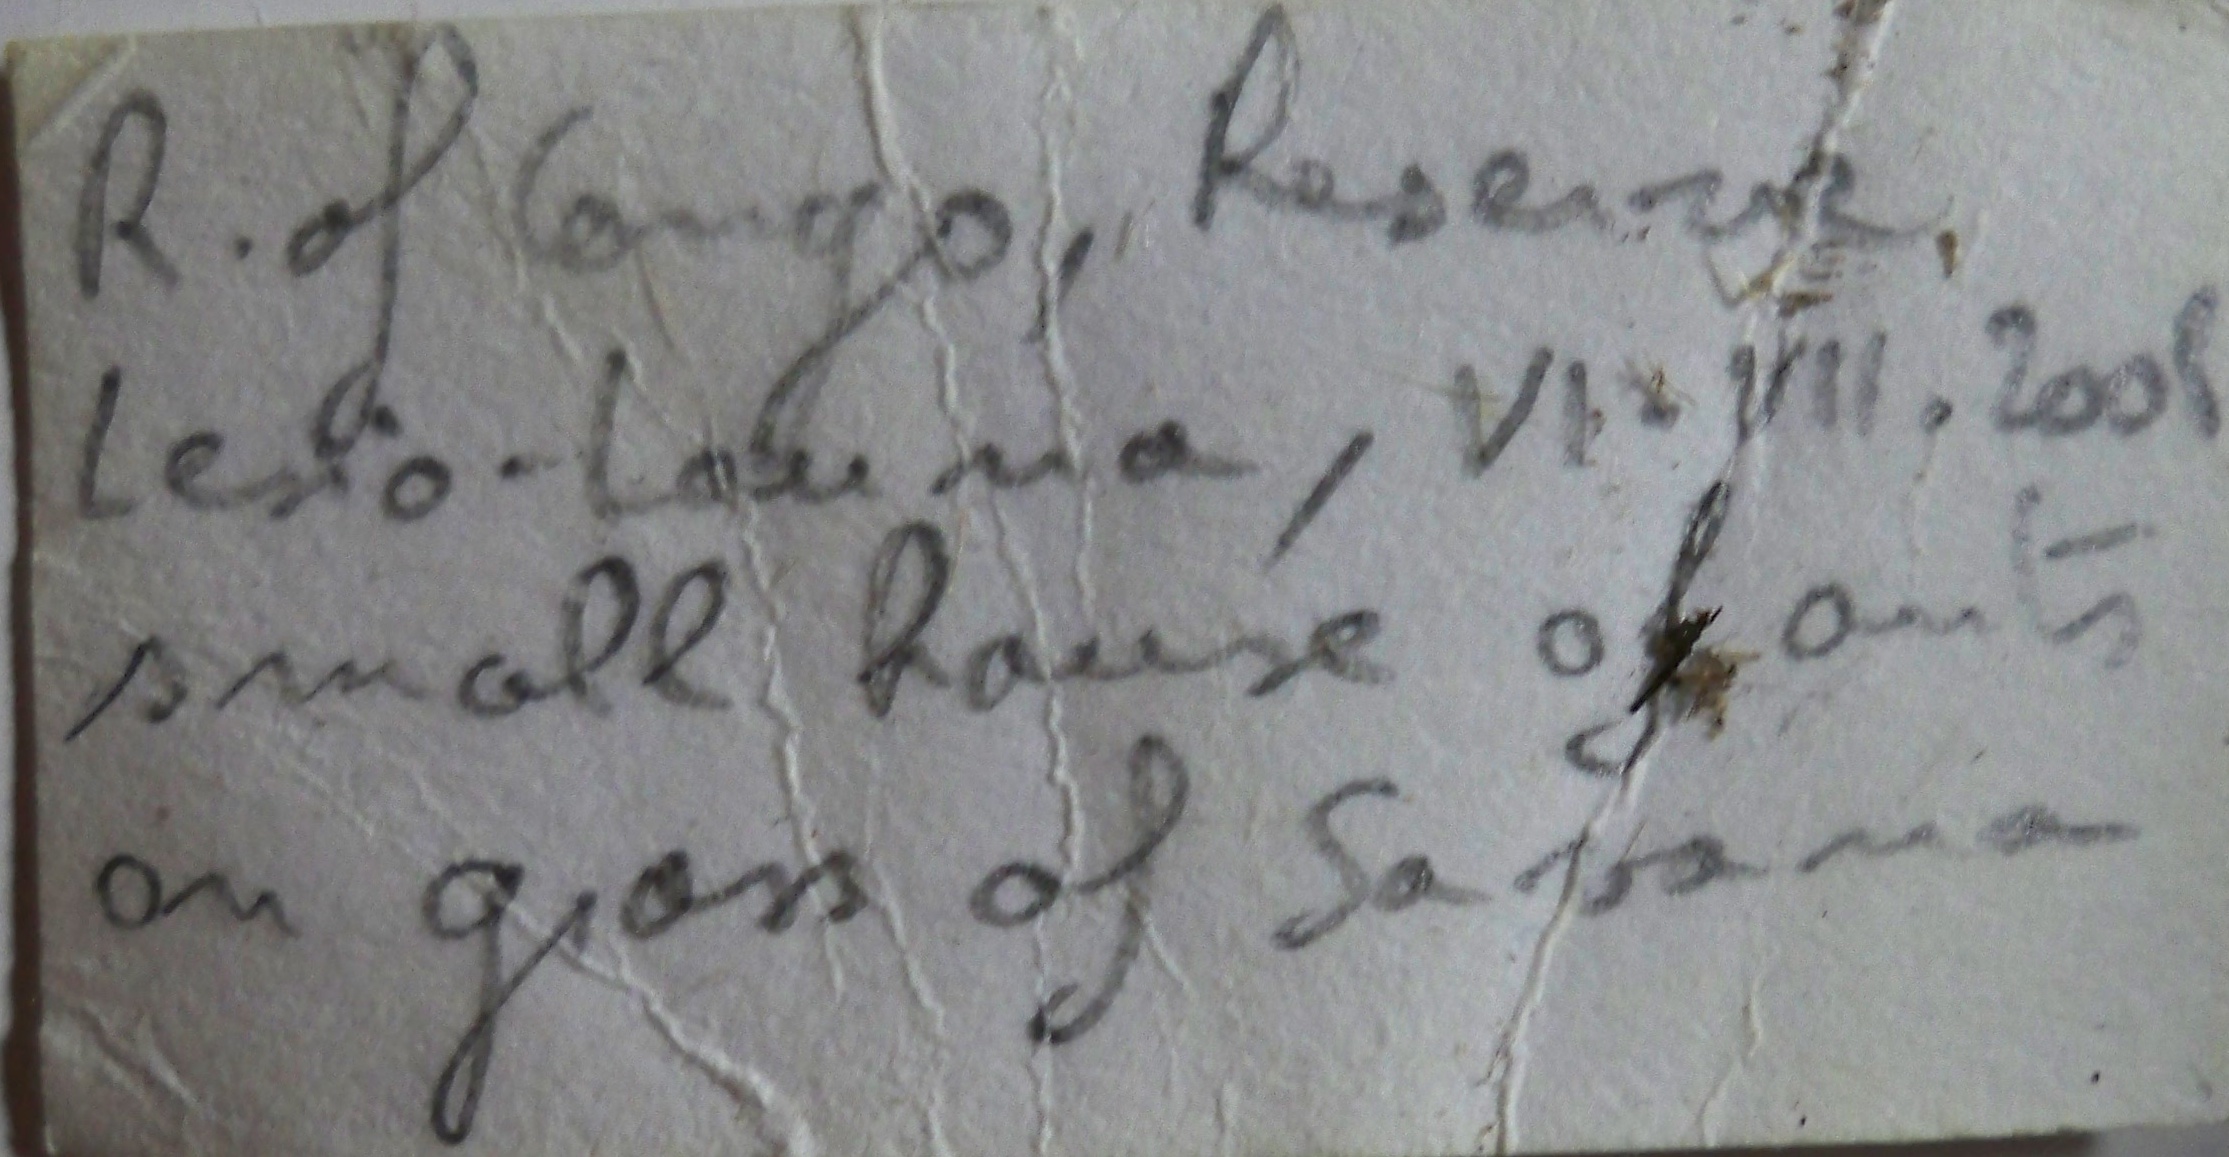 R. of Congo, Reserve
Lesio-Louna, VI-VIII.2008
small house of ants
on grass of Savana